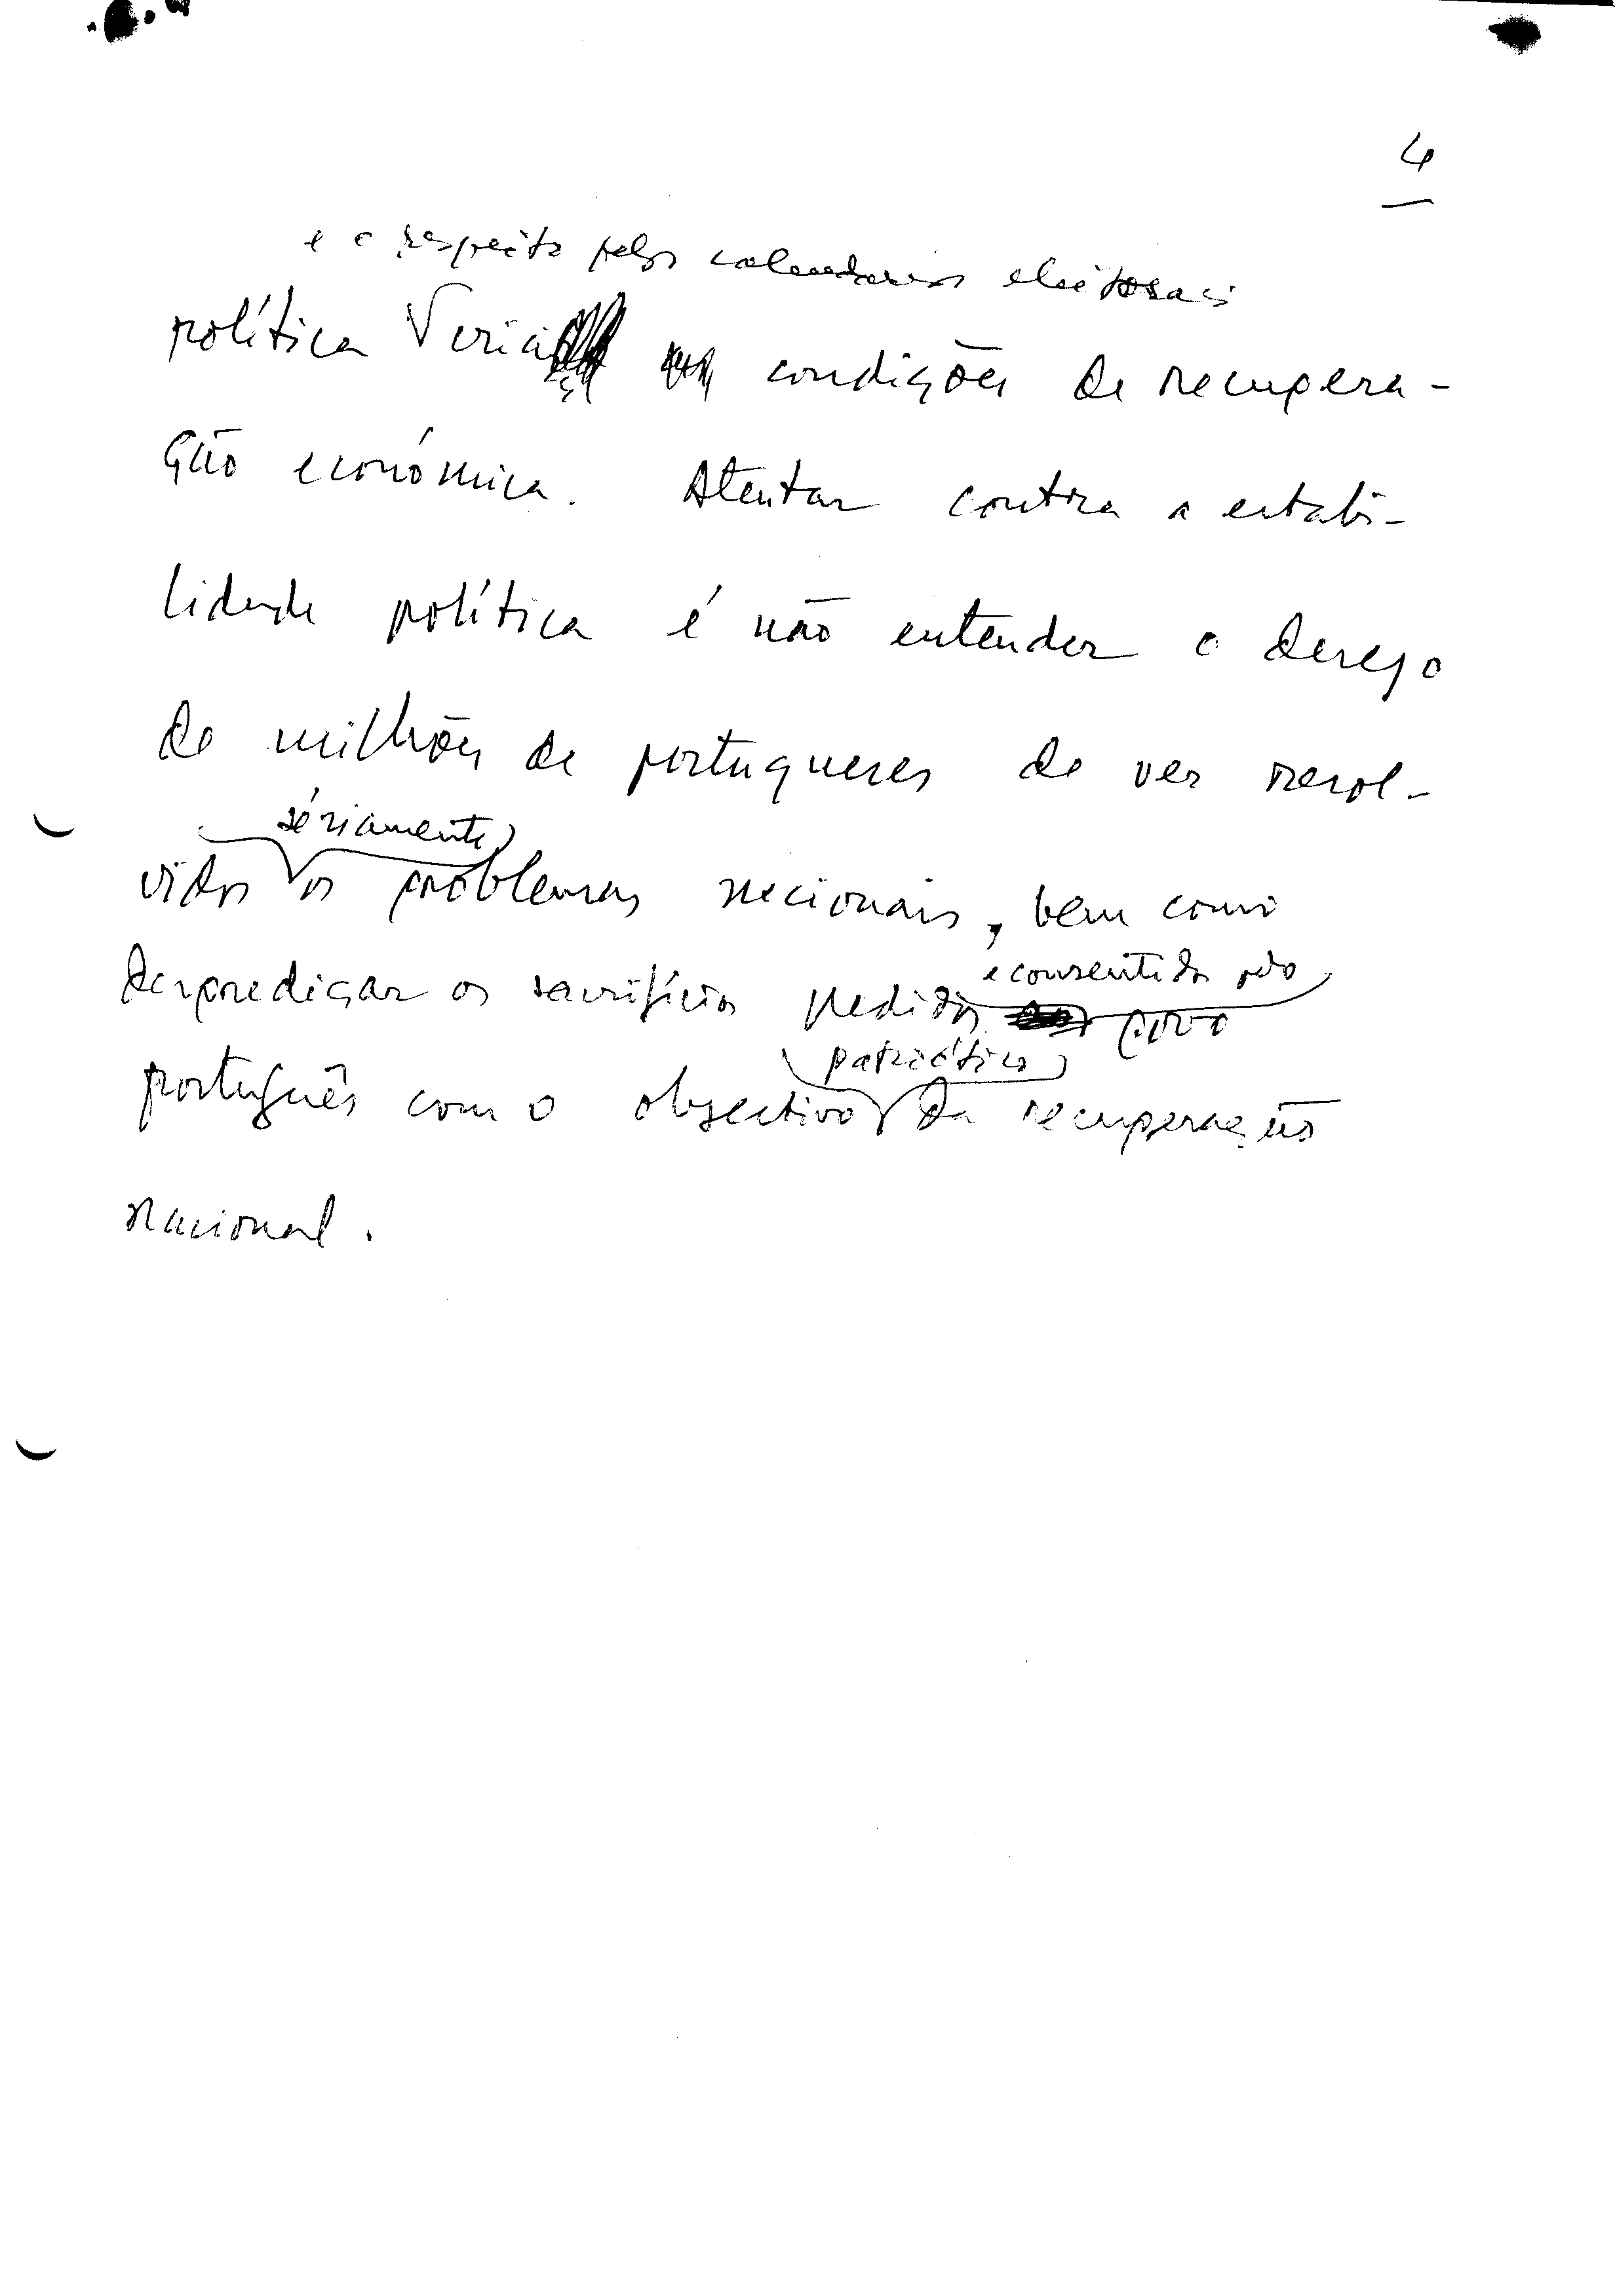 4
e o respeito pelos calendários eleitorais
política cria condições de recupera-
ção económica. Atentar contra a estabi-
lidade política é não entender o desejo
de milhões de portugueses de ver resol-
sériamente
vidos os problemas nacionais, bem como
desperdiçar os sacrifícios pedidos povo
e consentidos pelo
patriótico
português com o objectivo da recuperação
nacional.